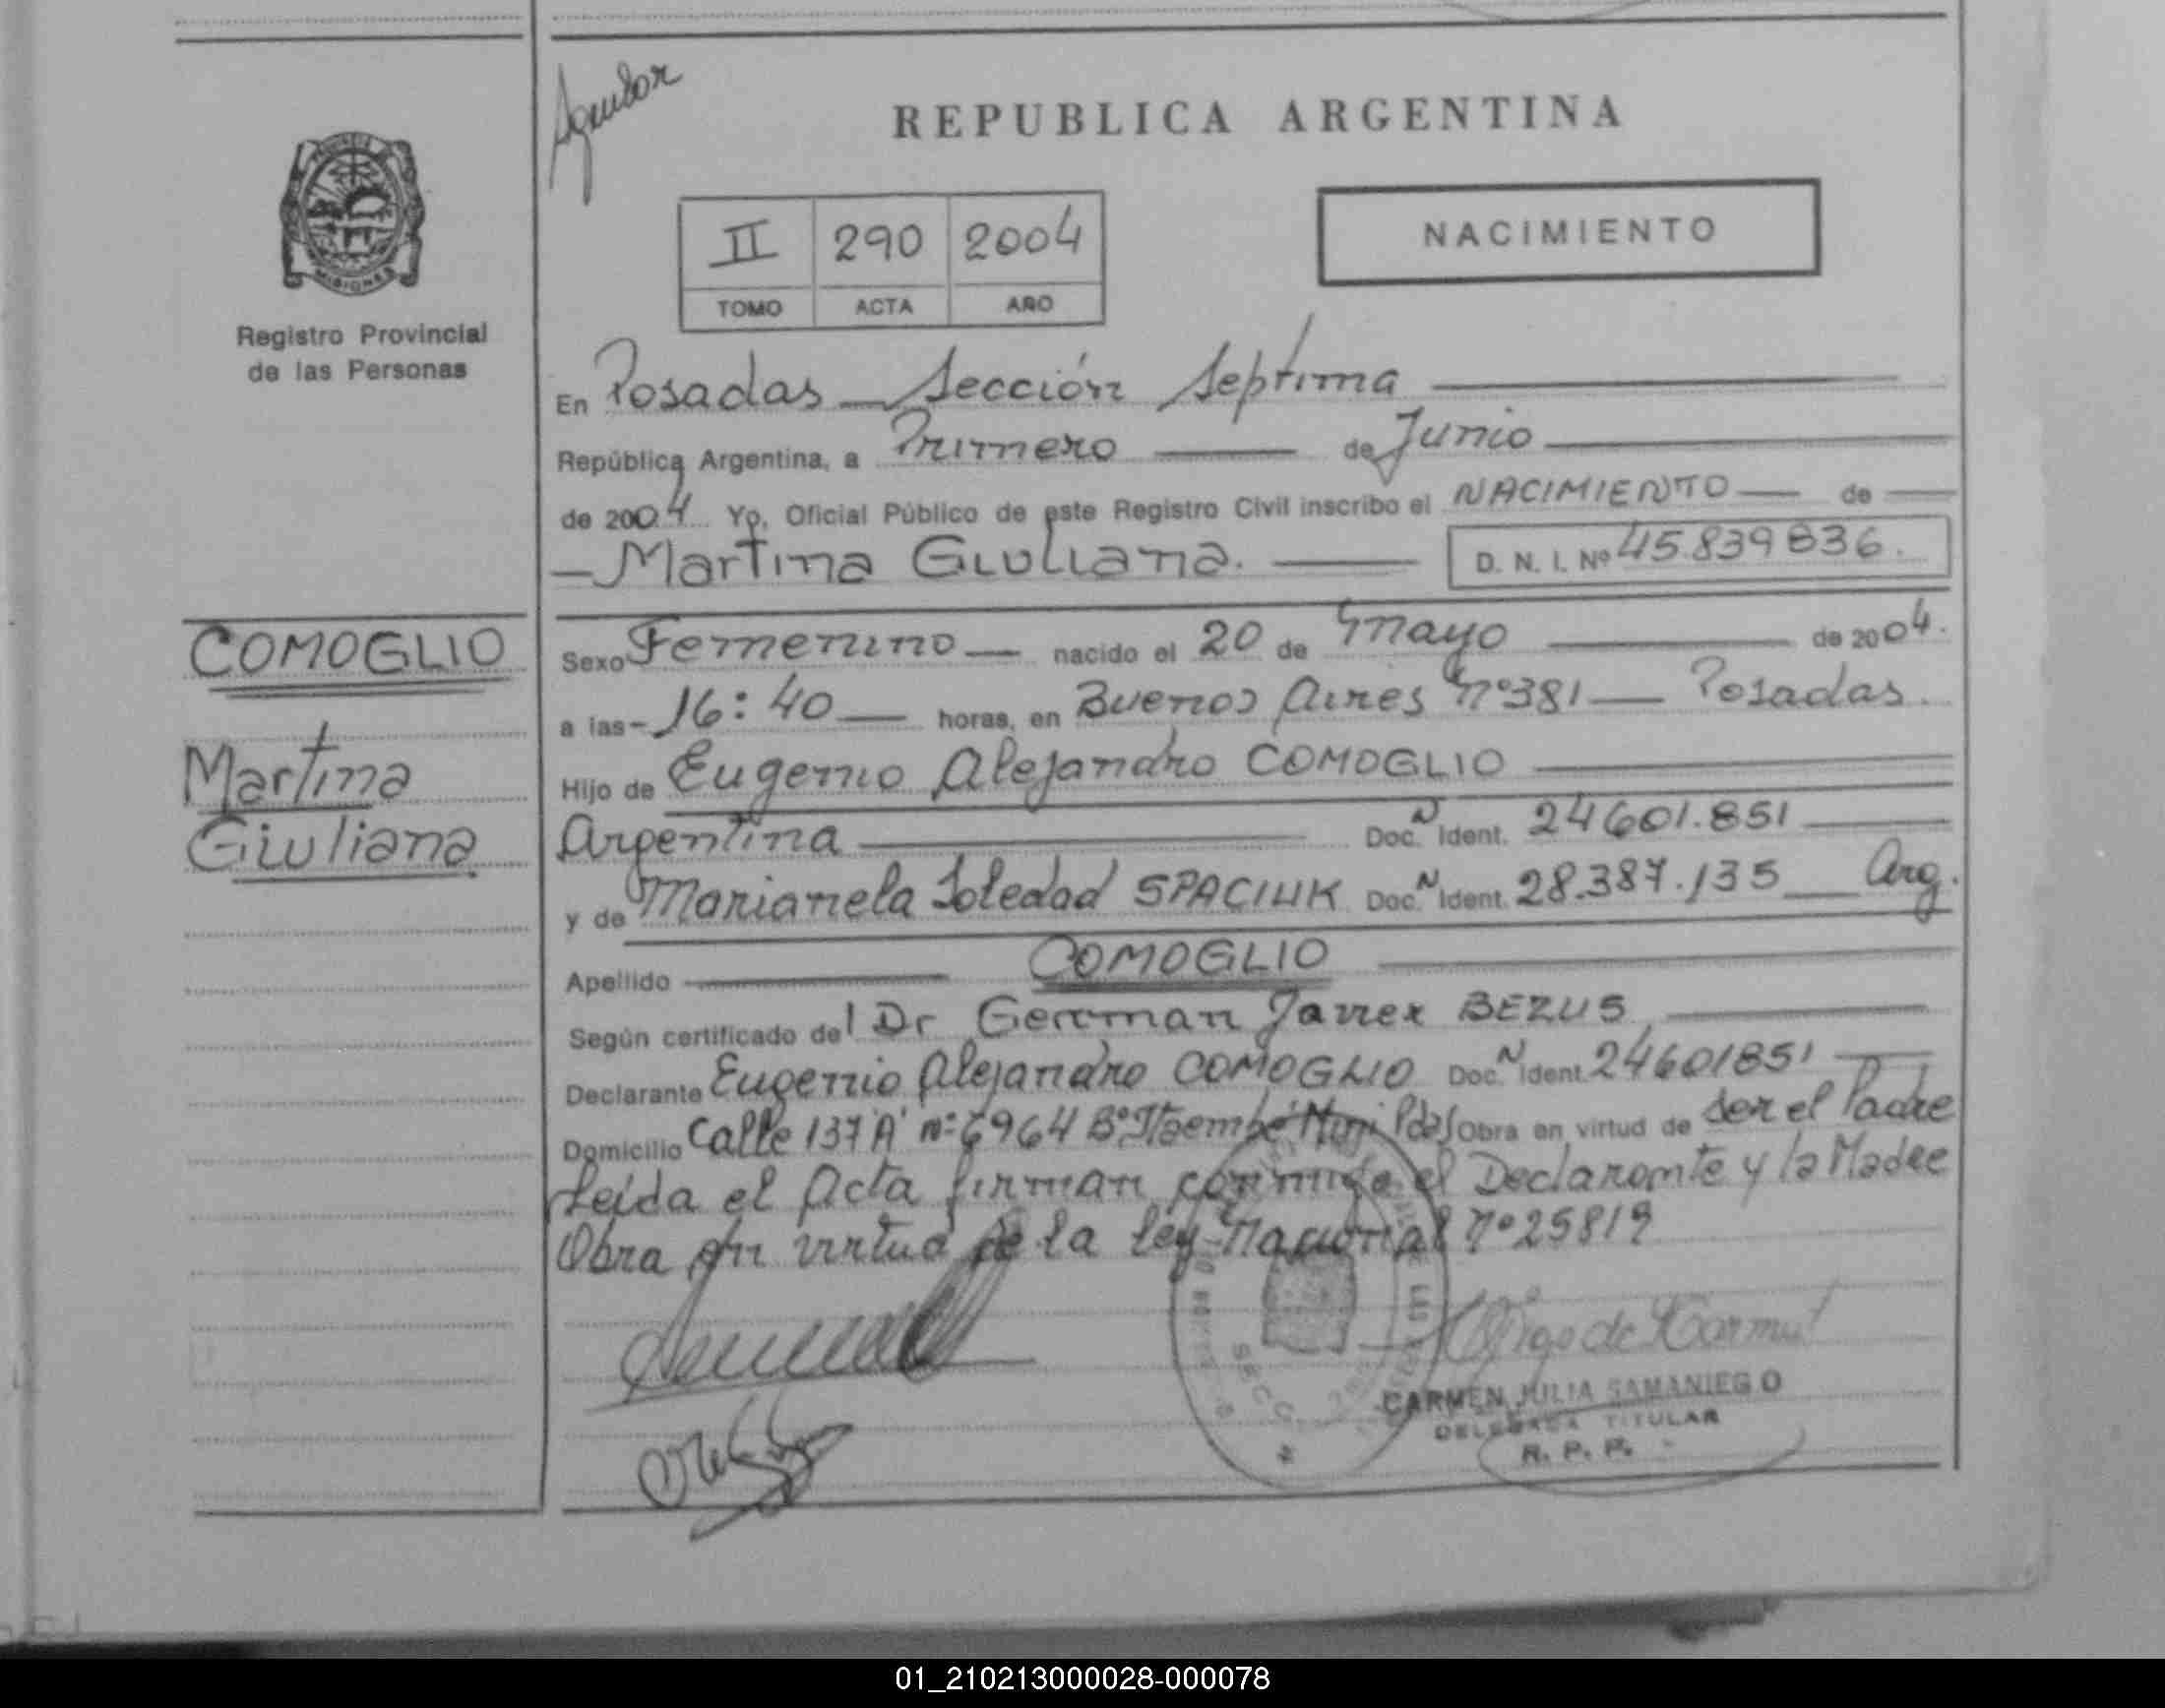 Aguilar
REPUBLICA ARGENTINA
MISIONES
II 290 2004
TOMO ACTA AÑO
NACIMIENTO
Registro Provincial
de las Personas
En Posadas — Sección Septima
República Argentina, a Primero — de Junio
de 2004 Yo, Oficial Público de este Registro Civil inscribo el NACIMIENTO — de
— Martina Giuliana. — D. N. I. Nº 45.839836.
COMOGLIO
Martina
Giuliana
Sexo Femenino — nacido el 20 de mayo — de 2004.
a las - 16:40 — horas, en Buenos Aires nº 381 — Posadas.
Hijo de Eugenio Alejandro COMOGLIO
Argentina — Doc. N Ident. 24601.851
y de Marianela Soledad SPACIUK Doc. N Ident. 28.387.135 — Arg.
Apellido — COMOGLIO
Según certificado del Dr German Javier BEZUS
Declarante Eugenio Alejandro COMOGLIO Doc. N Ident. 24601851
Domicilio Calle 137 'A' nº 6964 Bº Itaembé Mini Pdas Obra en virtud de ser el Padre
Leída el Acta firman conmigo el Declarante y la Madre
Obra en virtud de la ley Nacional nº 25819
CARMEN JULIA SAMANIEGO
DELEGADA TITULAR
R. P. P.
SECC.
01_210213000028-000078